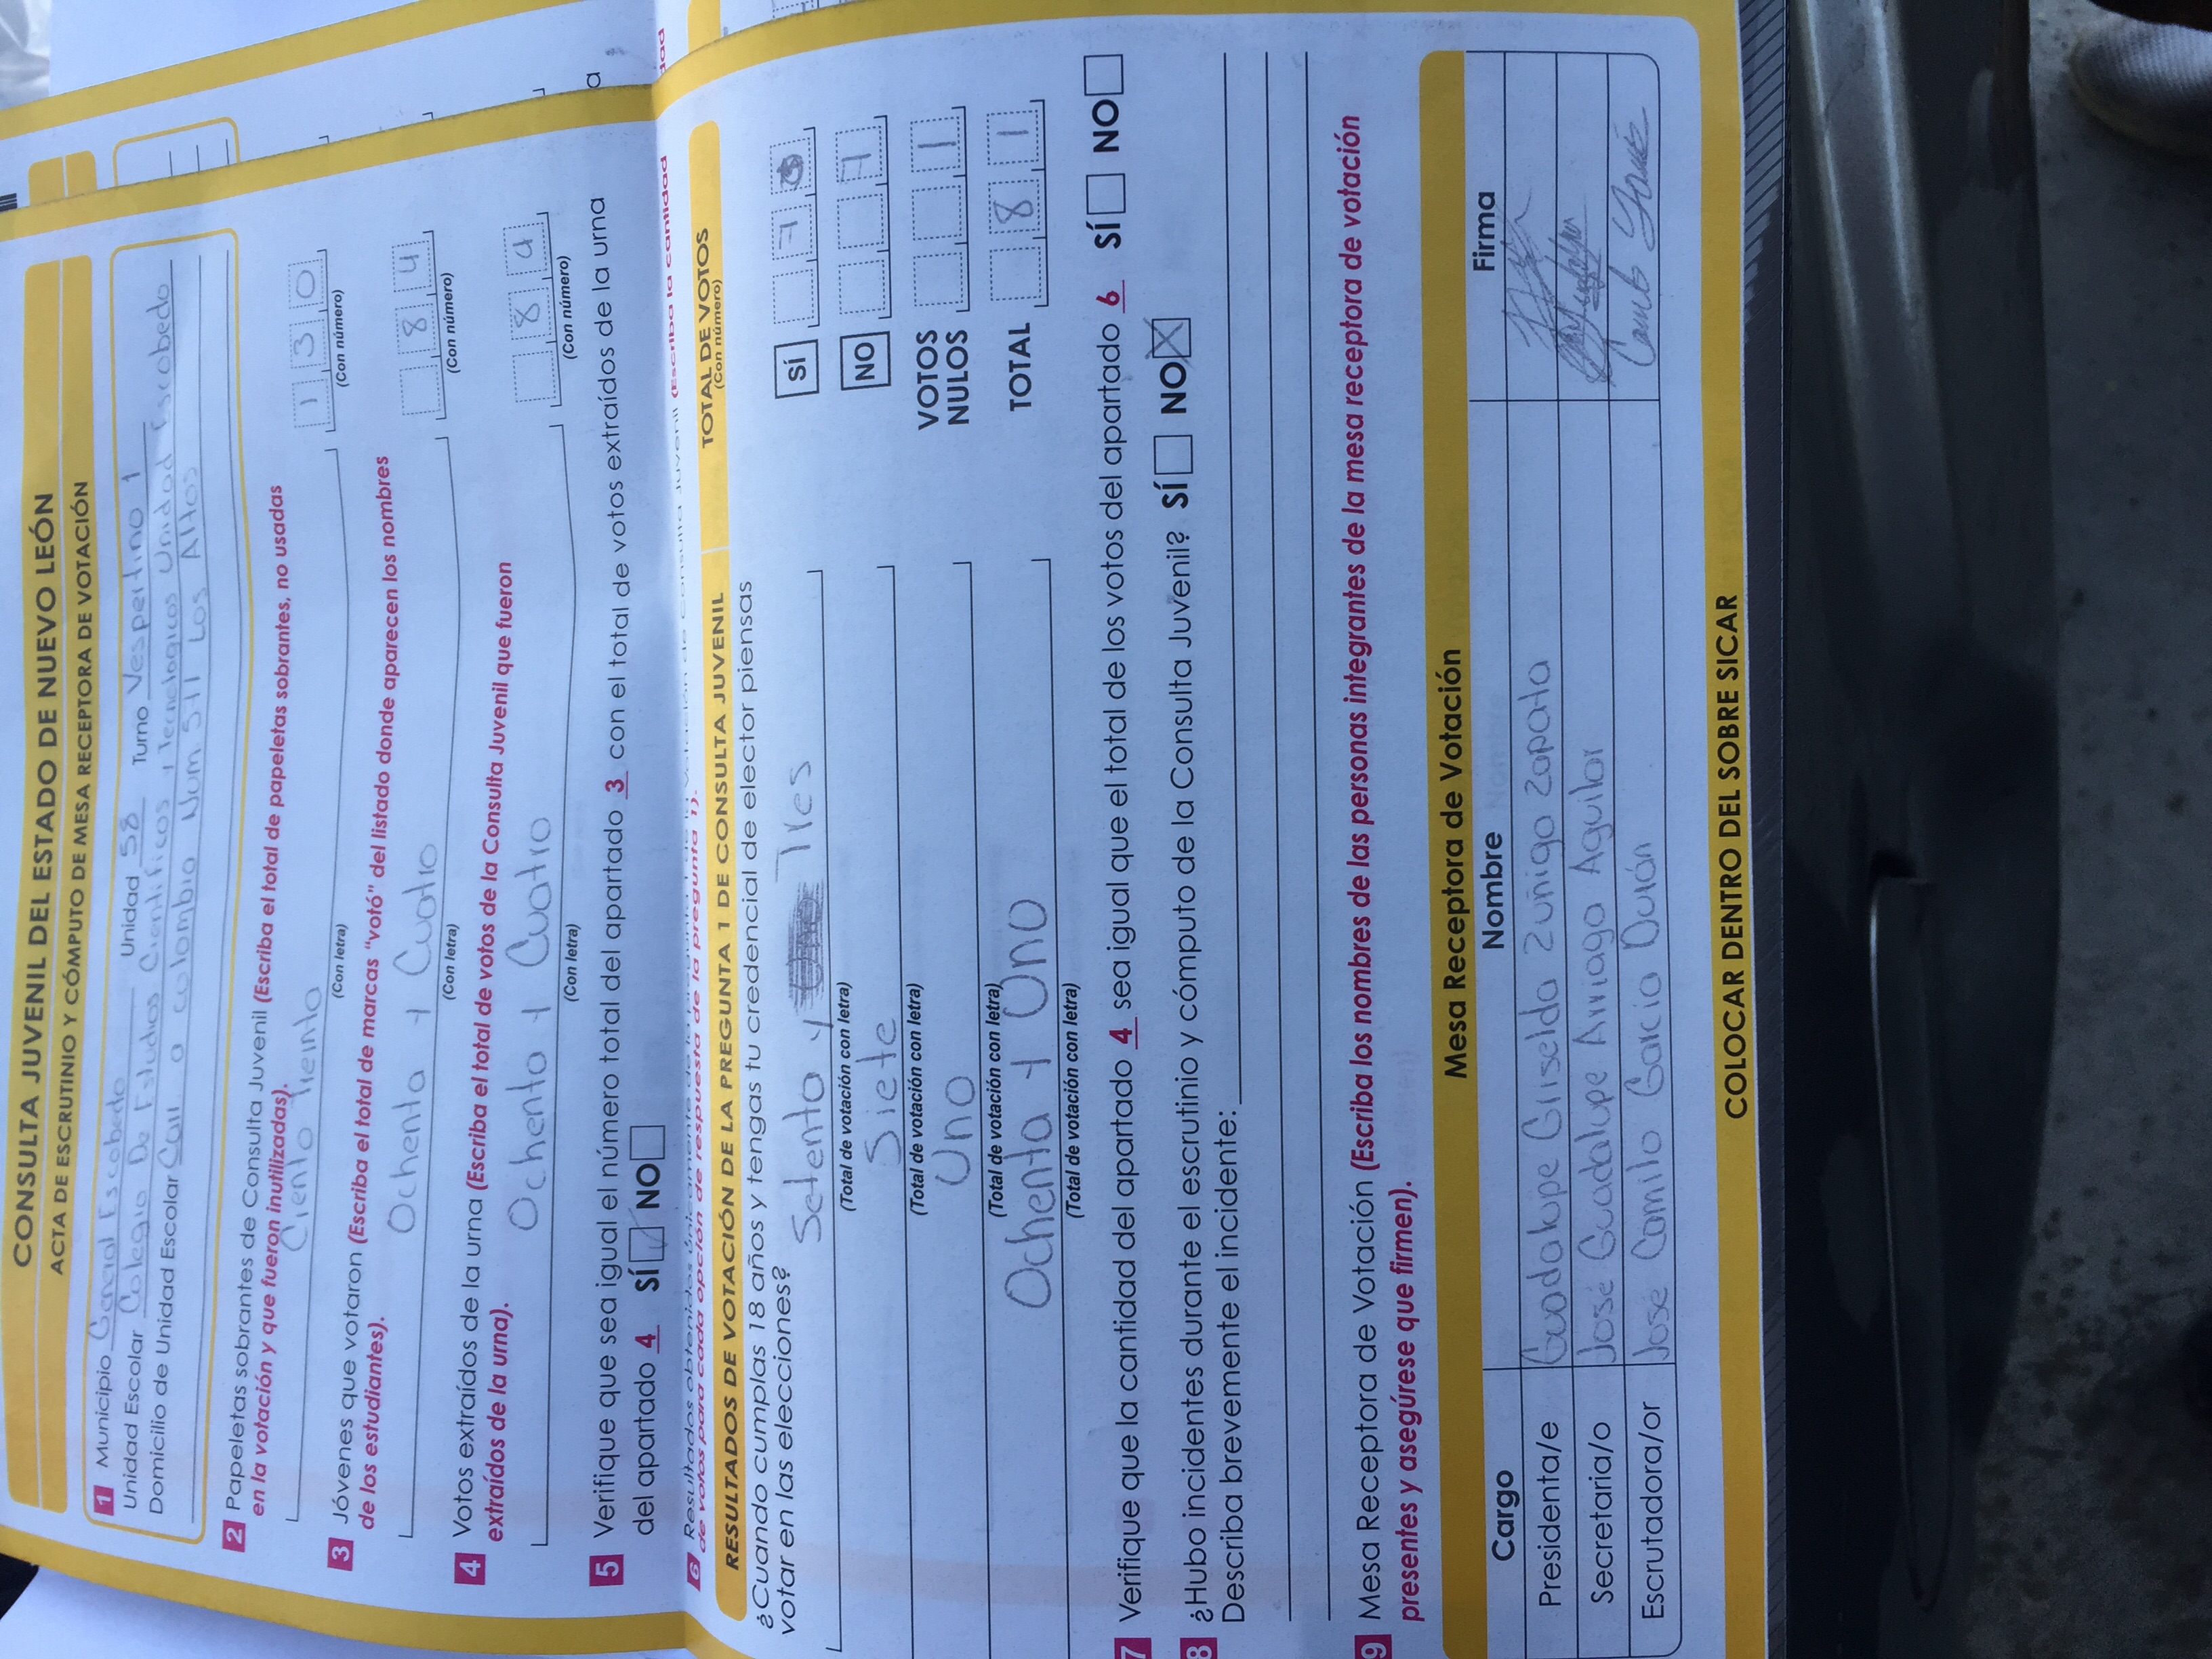 CONSULTA JUVENIL DEL ESTADO DE NUEVO LEÓN
ACTA DE ESCRUTINIO Y CÓMPUTO DE MESA RECEPTORA DE VOTACIÓN
1 Municipio General Escobedo
Unidad Escolar Colegio De Estudios Cientificos y Tecnologicos Unidad Escobedo Unidad 58 Turno Vespertino 1
Domicilio de Unidad Escolar Carr. a colombia Num 511 Los Altos
2 Papeletas sobrantes de Consulta Juvenil (Escriba el total de papeletas sobrantes, no usadas
en la votación y que fueron inutilizadas).
Ciento Treinta 1 3 0
(Con letra) (Con número)
3 Jóvenes que votaron (Escriba el total de marcas "votó" del listado donde aparecen los nombres
de los estudiantes).
Ochenta y Cuatro 8 4
(Con letra) (Con número)
4 Votos extraídos de la urna (Escriba el total de votos de la Consulta Juvenil que fueron
extraídos de la urna).
Ochenta y Cuatro 8 4
(Con letra) (Con número)
5 Verifique que sea igual el número total del apartado 3 con el total de votos extraídos de la urna
del apartado 4 SÍ NO
6 Resultados obtenidos
de votos para cada opción de respuesta de la pregunta 1).
RESULTADOS DE VOTACIÓN DE LA PREGUNTA 1 DE CONSULTA JUVENIL TOTAL DE VOTOS
(Con número)
¿Cuando cumplas 18 años y tengas tu credencial de elector piensas
votar en las elecciones?
Setenta y Tres SÍ 7
(Total de votación con letra)
Siete NO 7
(Total de votación con letra)
Uno VOTOS NULOS 1
(Total de votación con letra)
Ochenta y Uno TOTAL 8 1
(Total de votación con letra)
7 Verifique que la cantidad del apartado 4 sea igual que el total de los votos del apartado 6 SÍ NO
8 ¿Hubo incidentes durante el escrutinio y cómputo de la Consulta Juvenil? SÍ NO X
Describa brevemente el incidente:
9 Mesa Receptora de Votación (Escriba los nombres de las personas integrantes de la mesa receptora de votación
presentes y asegúrese que firmen).
Mesa Receptora de Votación
Cargo Nombre Firma
Presidenta/e Guadalupe Griselda Zuñiga Zapata
Secretaria/o José Guadalupe Arriaga Aguilar
Escrutadora/or José Camilo Garcia Durán
COLOCAR DENTRO DEL SOBRE SICAR